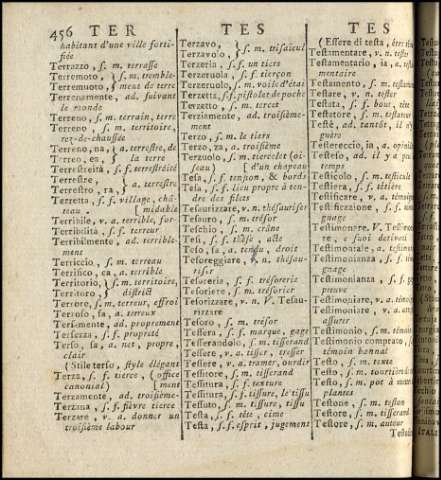 456 TER TES TES
habitant d'une ville forti-
fiée
Terrazzo, ſ. m. terraſſe
Terremoto, } ſ. m. tremble-
Terremuoto, } ment de terre
Terrenamente, ad. ſuivant
le monde
Terreno, ſ. m. terrain, terre
Terreno, ſ. m. territoire,
rez-de-chauſſée
Terreno, na, } a. terreſtre, de
Terreo, ea, } la terre
Terreſtreità, ſ. f. terreſtréité
Terreſtre, }
Terreſtro, ra, } a. terreſtre
Terretta, ſ. f. village, châ-
teau. [midable
Terribile, v. a. terrible, for-
Terribilità, ſ. f. terreur
Terribilmente, ad. terrible-
ment
Terriccio, ſ. m. terreau
Terrifico, ca, a. terrible
Territorio, } ſ. m. territoire,
Territoro, } diſtrict
Terrore, ſ. m. terreur, effroi
Terroſo, ſa, a. terreux
Terſamente, ad. proprement
Terſezza, ſ. f. propreté
Terſo, ſa, a. net, propre,
clair
(Stile terſo, ſtyle élégant
Terza, ſ. f. tierce (office
canonial) [ment
Terzamente, ad. troiſième-
Terzana, ſ. f. fièvre tierce
Terzare, v. a. donner un
troiſième labour
Terzavo, }
Terzavolo, } ſ. m. triſaïeul
Terzeria, ſ. f. un tiers
Terzeruola, ſ. f. tierçon
Terzeruolo, ſ. m. voile d'étai
Terzetta, ſ. f. piſtolet de poche
Terzetto, ſ. m. tercet
Terziamente, ad. troiſième-
ment
Terzo, ſ. m. le tiers
Terzo, za, a. troiſième
Terzuolo, ſ. m. tiercelet (oi-
ſeau) [d'un chapeau
Teſa, ſ. f. tenſion, & bords
Teſa, ſ. f. lieu propre à ten-
dre des filets
Teſaurizzare, v. n. théſauriſer
Teſauro, ſ. m. tréſor
Teſchio, ſ. m. crâne
Teſi, ſ. f. thèſe, acte
Teſo, ſa, a. tendu, droit
Teſoreggiare, v. n. théſau-
riſer
Teſoreria, ſ. f. tréſorerie
Teſoriere, ſ. m. tréſorier
Teſorizzare, v. n. V. Teſau-
rizzare
Teſoro, ſ. m. tréſor
Teſſera, ſ. f. marque, gage
Teſſerandolo, ſ. m. tiſſerand
Teſſere, v. a. tiſſer, treſſer
Teſſere, v. a. tramer, ourdir
Teſſitore, ſ. m. tiſſerand
Teſſitura, ſ. f. texture
Teſſitura, ſ. f. tiſſure, le tiſſu
Teſſuto, ſ. m. tiſſu, tiſſu
Teſta, ſ. f. tête, cime
Teſta, ſ. f. eſprit, jugement
(Eſſere di teſta, être
Teſtamentare, v. n. teſter
Teſtamentario, ia, a. teſta-
mentaire
Teſtamento, ſ. m. teſtament
Teſtare, v. n. teſter
Teſtata, ſ. f. bout, tête
Teſtatore, ſ. m. teſtateur
Teſtè, ad. tantôt, il n'y
guère
Teſtereccio, ia, a. opiniâ
Teſteſo, ad. il y a peu
temps
Teſticolo, ſ. m. teſticule
Teſtiera, ſ. f. têtière
Teſtificare, v. a. témoi
Teſtificazione, ſ. f.
gnage
Teſtimoniare, V. Teſtifica-
re, e ſuoi derivati
Teſtimoniale, a. teſtimo
Teſtimonianza, ſ. f. témoi
gnage
Teſtimonianza, ſ. f.
preuve
Teſtimoniare, v. a. témoi
Teſtimoniare, v. a.
aſſurer
Teſtimonio, ſ. m. témoin
Teſtimonio comprato, ſ. m.
témoin banal
Teſto, ſ. m. texte
Teſto, ſ. m. tourtière
Teſto, ſ. m. pot à mettre
plantes
Teſtone, ſ. m. teſton
Teſtore, ſ. m. tiſſerand
Teſtore, ſ. m. auteur